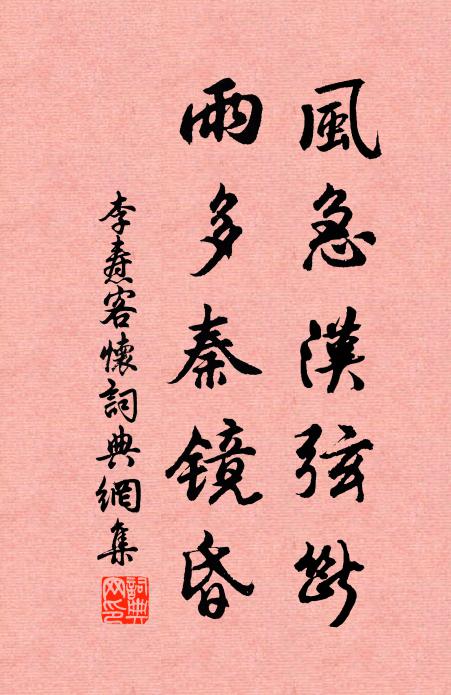 風急漢弦斷
雨多秦鏡昏
李燾客懷詞典網集
詞典網印